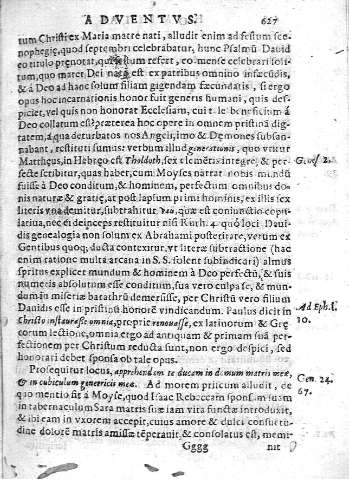 ADVENTVS. 627
tum Christi ex Maria matre nati, alludit enim ad festum sce-
nophegiæ, quod septembri celebrabatur, hunc Psalmũ Dauid
eo titulo prænotat, refert, eo mense celebrari soli-
tum, quo mater Dei nata est ex patribus omnino infæcũdis,
& à Deo ad hanc solum filiam gigendam fæcundatis, si ergo
opus hoc incarnationis honor fuit generis humani, quis des-
piciet, vel quis non honorat Ecclesiam, cui tale beneficium à
Deo collatum est? præterea hoc opere in omnem pristinã dig-
tatem, à qua deturbatos nos Angeli, imo & Dęmones subsan-
nabant, restituti sumus: verbum illud generationis, quo vtitur
Matthęus, in Hebręo est Tholdoth, sex elemẽtis integrè, & per-
fectè scribitur, quas haber, cum Moyses narrat nobis mundũ
fuisse à Deo conditum, & hominem, perfectum omnibus do-
nis naturæ & gratiæ, at post lapsum primi hominis, ex illis sex
literis vna demitur, subtrahitur vau, quæ est coniunctio copu-
latiua, nec ei deinceps restituitur nisi Ruth. 4. quo loci Daui-
dis genealogia non solum ex Abrahami posteritate, verum ex
Gentibus quoq; ducta contexitur, vt literæ subtractione (hac
enim ratione multa arcana in S. S. solent subindicari) almus
spritus explicet mundum & hominem à Deo perfectũ, & suis
numeris absolutum esse conditum, sua vero culpa, & mun-
dum in miseriæ barathrũ demersisse, per Christũ vero filium
Dauidis esse in pristinũ honorẽ vindicandum. Paulus dicit in
Christo instaurasse omnia, propriè renouasse, ex latinorum & Grę
corum lectione, omnia ergo ad antiquam & primam suã per-
fectionem per Christum reducta sunt, non ergo despici, sed
honorari debet sponsa ob tale opus.
Prosequitur locus, apprehendam te ducam in domum matris meæ,
& in cubiculum genetricis meæ. Ad morem priscum alludit, de
quo mentio fit à Moyse, quod Isaac Rebeccam sponsam suam
in tabernaculum Sara matris suæ iam vita functæ introduxit,
& ibi eam in vxorem accepit, cuius amore & dulci consue-
tudine dolorẽ matris amissæ tẽperauit, & consolatus est, memi-
Gggg nit
Genes. 2.
Ad Eph. 1.
10.
Gen. 24.
67.